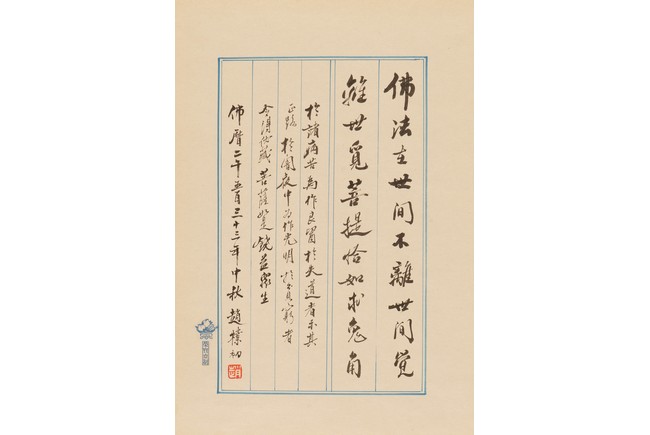 佛法在世間不離世間覺
離世覓菩提恰如求兔角
於諸病苦為作良醫於失道者示其
正路於闇夜中為作光明於貧窮者
令得伏藏菩薩如是饒益眾生
佛曆二千五百三十三年中秋趙樸初